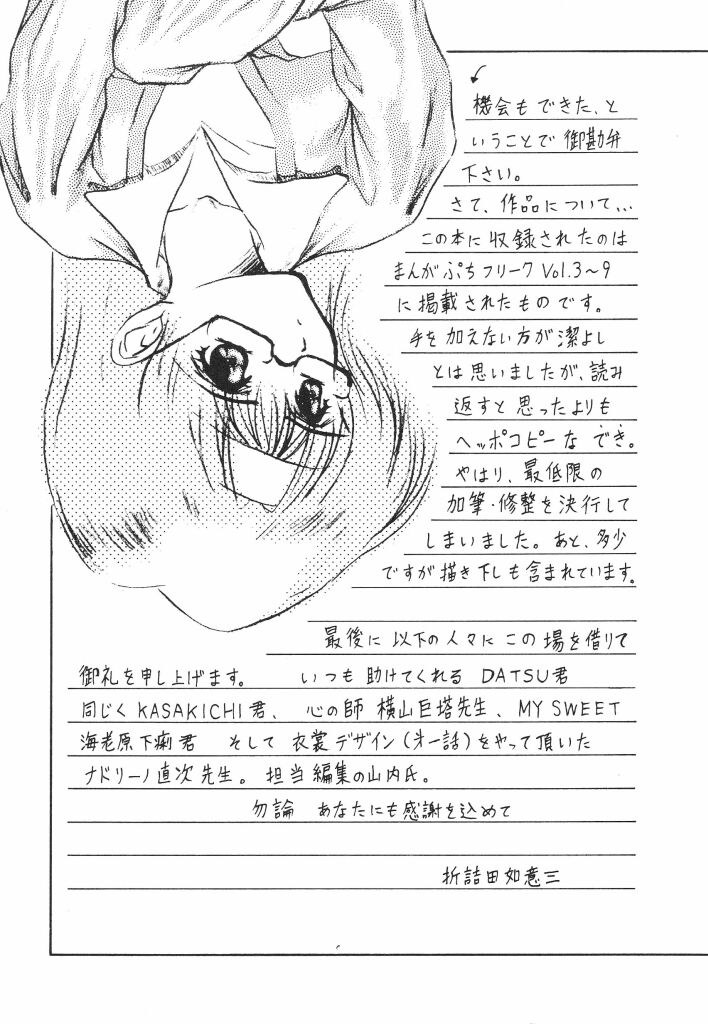 機会もできた、と
いうことで御勘弁
下さい。
さて、作品について…
この本に収録されたのは
まんがぷちフリーク Vol.3〜9
に掲載されたものです。
手を加えない方が潔よし
とは思いましたが、読み
返すと思ったよりも
ヘッポコピーなでき。
やはり、最低限の
加筆・修整を決行して
しまいました。あと、多少
ですが描き下しも含まれています。
最後に以下の人々にこの場を借りて
御礼を申し上げます。 いつも助けてくれる DATSU君
同じくKASAKICHI君、心の師 横山巨塔先生、MY SWEET
海老原下痢君 そして衣裳デザイン(才一話)をやって頂いた
ナドリーノ直次先生。担当編集の山内氏。
勿論 あなたにも感謝を込めて
折詰田如意三